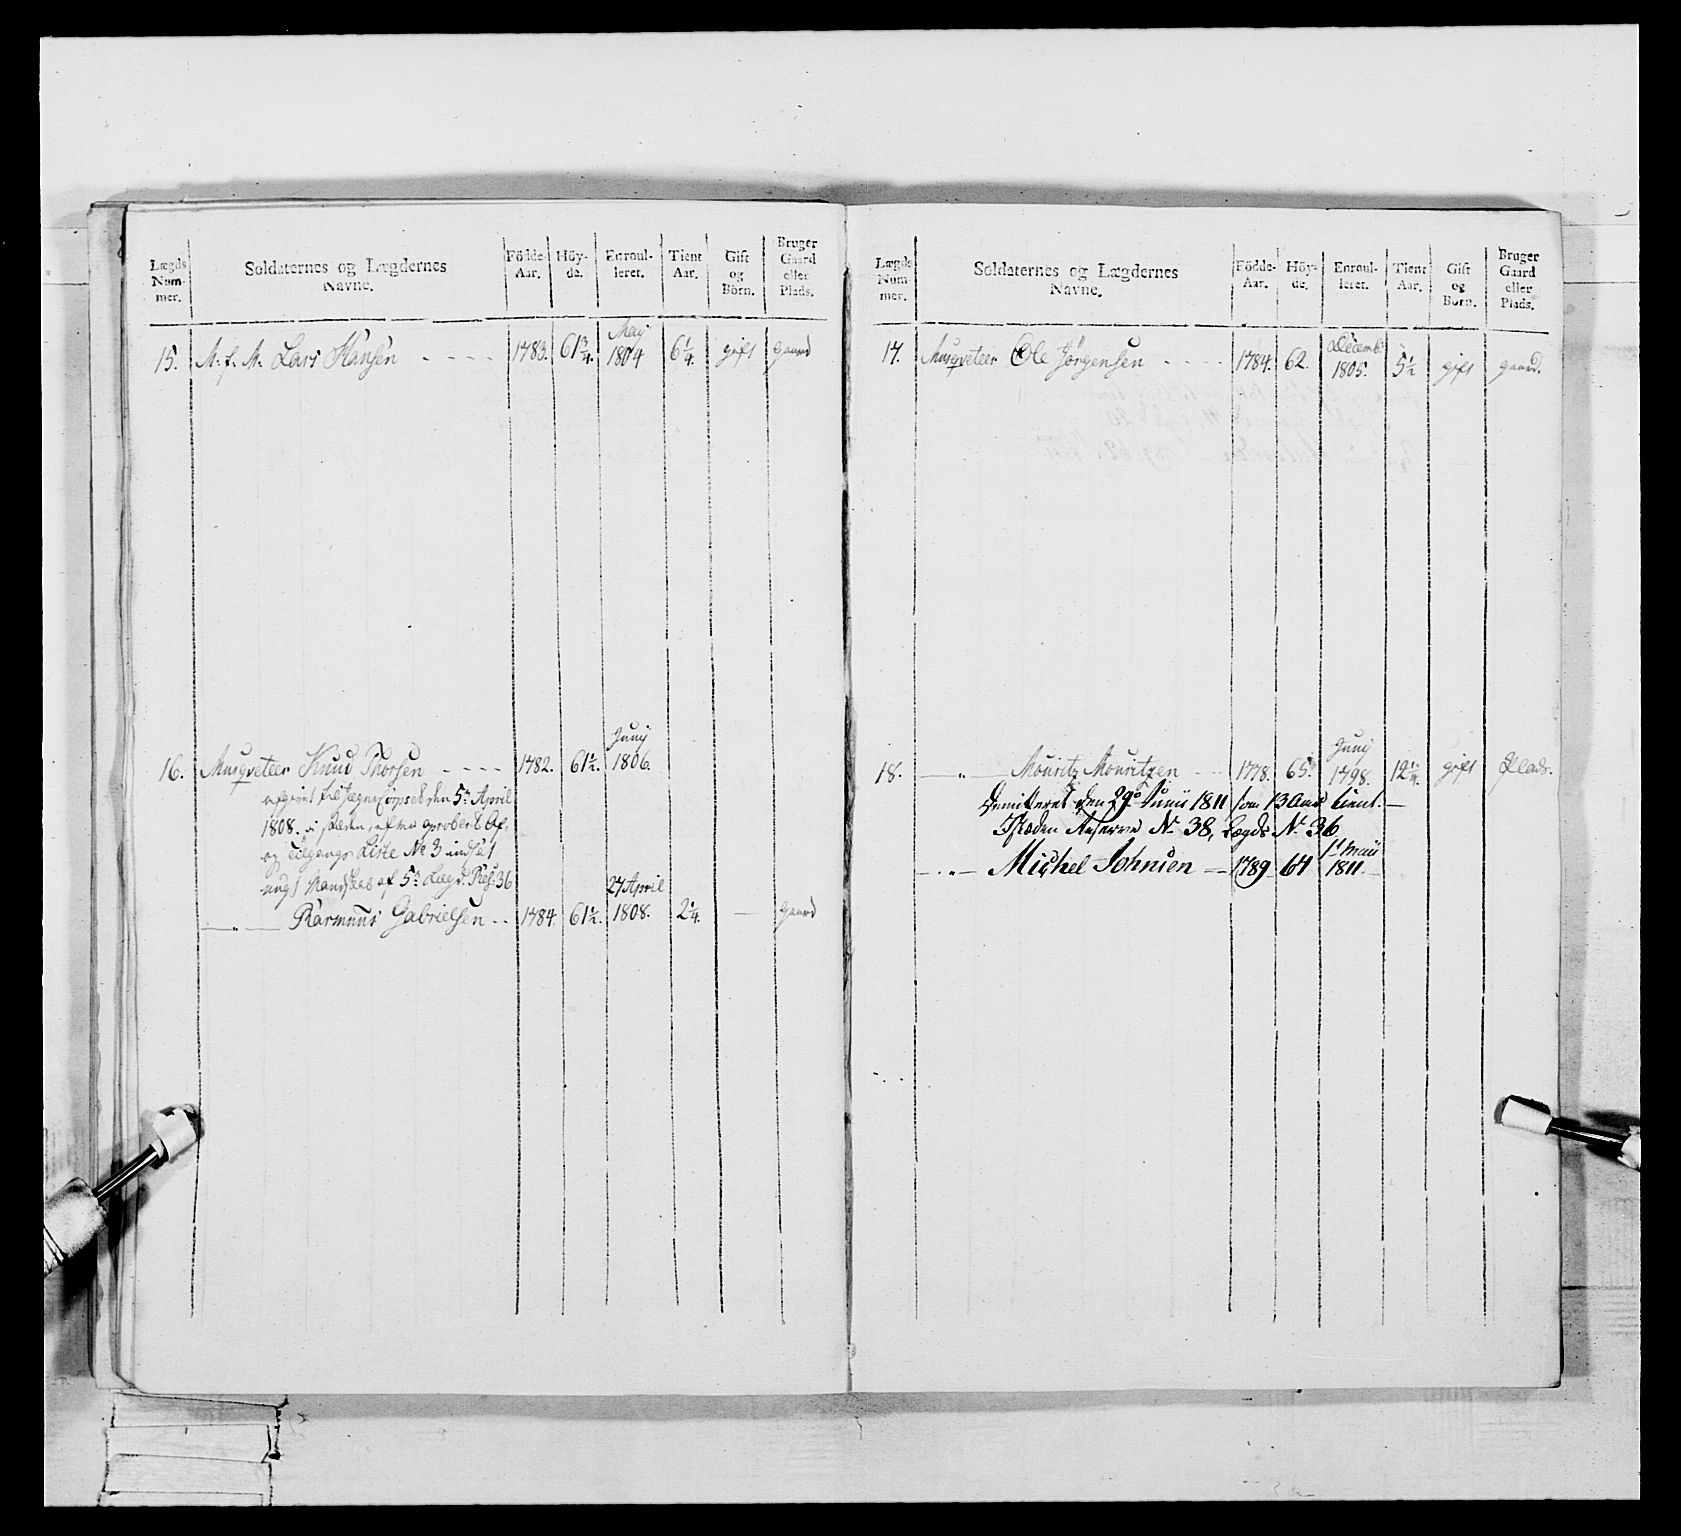 Lægds Num-mer.
Soldaternes og Lægdernes Navne.
Födde-Aar.
Höy-de.
Enroul-leret.
Tient Aar.
Gift og Börn.
Bruger Gaard eller Plads.
15. M. f. M. Lars Hansen - - - - 1783. 61 3/4. May 1804 6 1/4. gift Gaard
16. Musqveteer Knud Thorsen - - - - 1782. 61 1/2. Juny 1806.
afgivet til Jæger Corpset den 5te April
1808. i stæden, efter aproberet Af-
og Tilgangs Liste No 3 indsat
ungt Mandskab af 5te Lægd. Res: 36
—„— Rasmus Gabrielsen - - 1784. 61 1/2. 27 April 1808. 2 1/4. — Gaard
Lægds Num-mer.
Soldaternes og Lægdernes Navne.
Födde-Aar.
Höy-de.
Enroul-leret.
Tient Aar.
Gift og Börn.
Bruger Gaard eller Plads.
17. Musqveteer Ole Jörgensen - - - - 1784. 62. Decemb: 1805. 5 1/2 gift gaard.
18. —„— Mouritz Mouritzen - - 1778. 65. Juny 1798. 12 1/4. gift Plads.
Demitteret den 29de Junii 1811 som 13 Aar tient. —
Istæden Reserve No 38, Lægds No 36
—„— Michel Johnsen — 1789 64 1t Maii 1811.